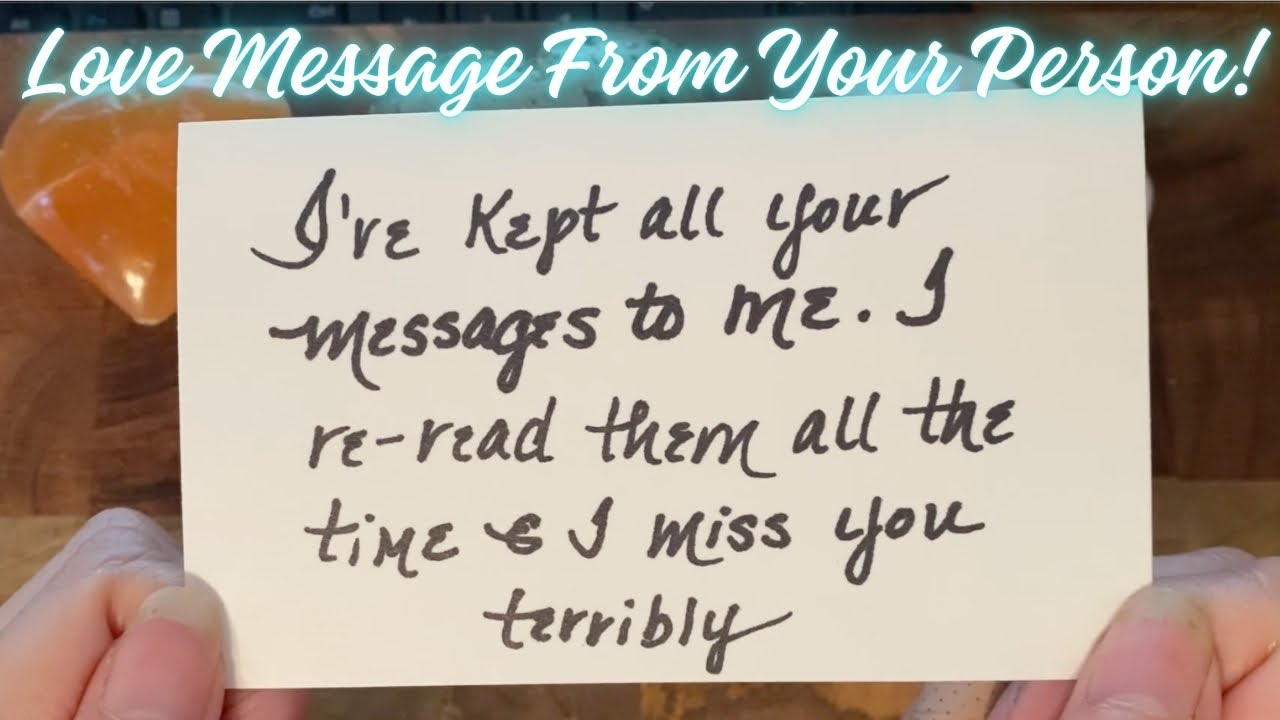 Love Message From Your Person!
I've kept all your
messages to me. I
re-read them all the
time & I miss you
terribly